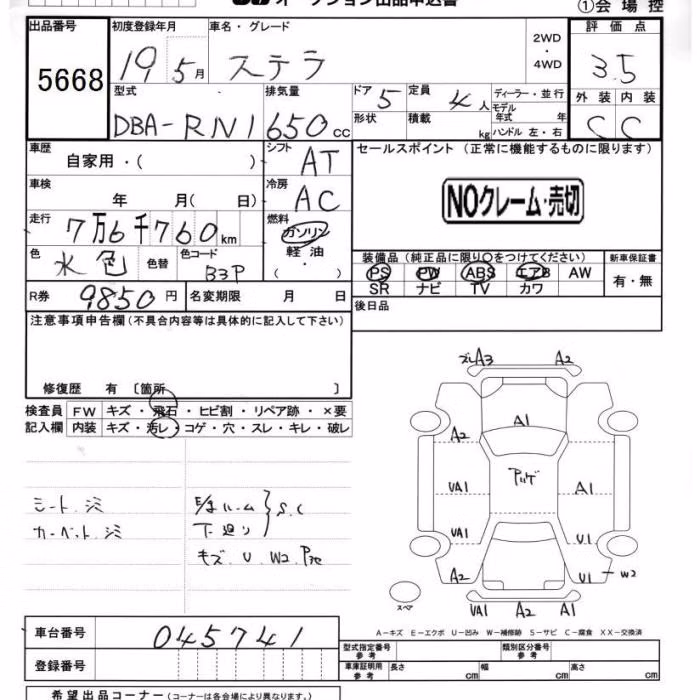 オークション出品申込書
①会場控
出品番号 初度登録年月 車名・グレード 2WD ・ 4WD 評価点
5668 19 5月 ステラ 3.5
型式 排気量 ドア 5 定員 4人 ディーラー・並行 外装 内装
DBA-RN1 650cc 形状 積載 kg モデル年式 年 ハンドル 左・右 C C
車歴 自家用・( ) シフト AT セールスポイント (正常に機能するものに限ります)
車検 年 月( 日) 冷房 AC NOクレーム・売切
走行 7万6千760km 燃料 ガソリン 軽油 ・( )
色 水色 色替 色コード B3P
装備品(純正品に限り○をつけてください) 新車保証書
PS PW ABS エアB AW 有・無
SR ナビ TV カワ
R券 9,850円 名変期限 月 日 後日品
注意事項申告欄(不具合内容等は具体的に記入して下さい)
修復歴 有 〔箇所 〕
検査員 FW キズ・飛石・ヒビ割・リペア跡・×要
記入欄 内装 キズ・汚レ・コゲ・穴・スレ・キレ・破レ
ズレA3 A2
A2 A1
UA1 A1
UA1 U1
A2 U1-W2
スペア
UA1 A2 A1
シート.シミ ルーム S.C
カーペット.シミ 下廻り
キズ U W2
A-キズ E-エクボ U-凹み W-補修跡 S-サビ C-腐食 XX-交換済
車台番号 045741
登録番号
型式指定番号 参考 類別区分番号 参考
車庫証明用 参考 長さ cm 幅 cm 高さ cm
希望出品コーナー(コーナーは各会場により異なります。)